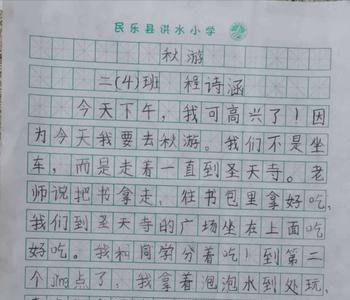 民乐县洪水小学
秋游
二(4)班 程诗涵
今天下午，我可高兴了！因
为今天我要去秋游。我们不是坐
车，而是走着一直到圣天寺。老
师说把书拿走，往书包里拿好吃，
我们到圣天寺的广场坐在上面吃
好吃。我和同学分着吃！到第二
个jm点了，我拿着泡泡水到处玩，